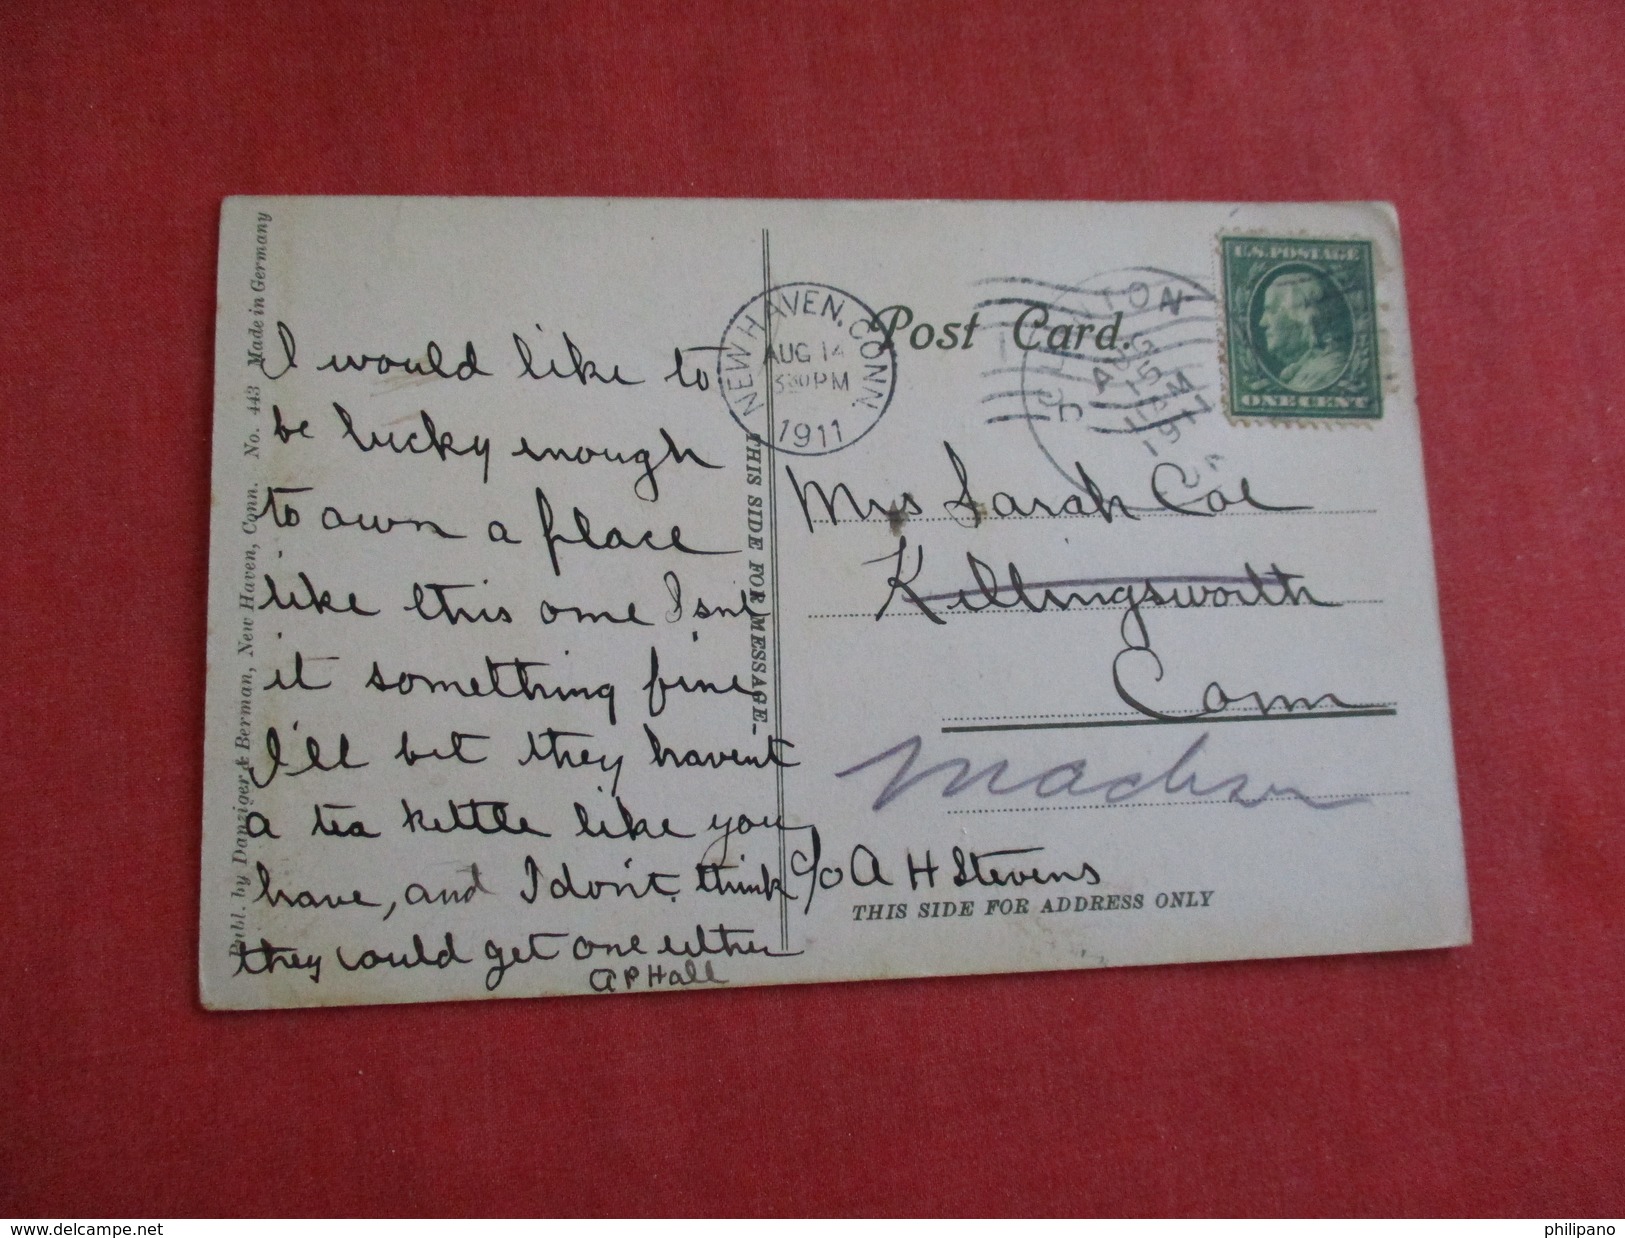 Publ. by Danziger & Berman, New Haven, Conn. No. 443 Made in Germany
I would like to
be lucky enough
to own a place
like this one Isnt
it something fine
I'll bet they havent
a tea kettle like you
have, and I don't think
they could get one either
A P Hall
THIS SIDE FOR MESSAGE
NEW HAVEN, CONN.
AUG 14
330PM
1911
Post Card.
CLINTON
AUG
15
PM
1911
U.S. POSTAGE
ONE CENT
Mrs Sarah Coe
Killingsworth
Conn
Madison
c/o A H Stevens
THIS SIDE FOR ADDRESS ONLY
delcampe.net
philipano